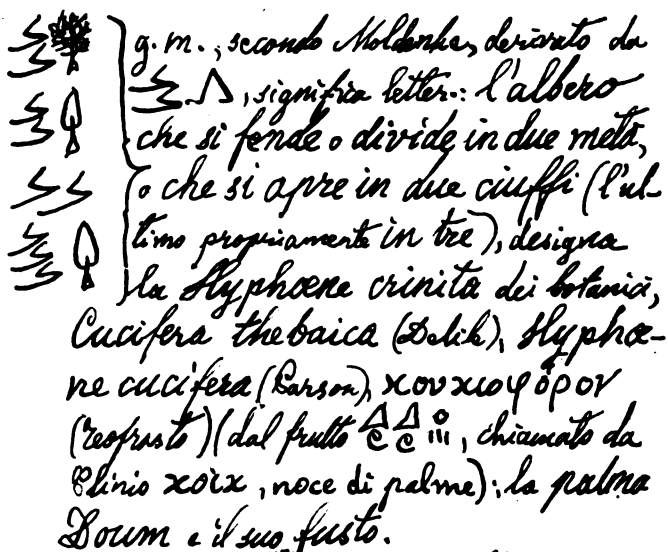 g. m., secondo Moldenke, derivato da
, significa letter.: l'albero
che si fende o divide in due metà,
o che si apre in due ciuffi (l'ul-
timo propriamente in tre), designa
la Hyphœne crinita dei botanici,
Cucifera thebaica (Delile), Hyphœ-
ne cucifera (Parson), κουκιοφόρον
(Teofrasto) (dal frutto , chiamato da
Plinio κοϊκ, noce di palme); la palma
Doum e il suo fusto.